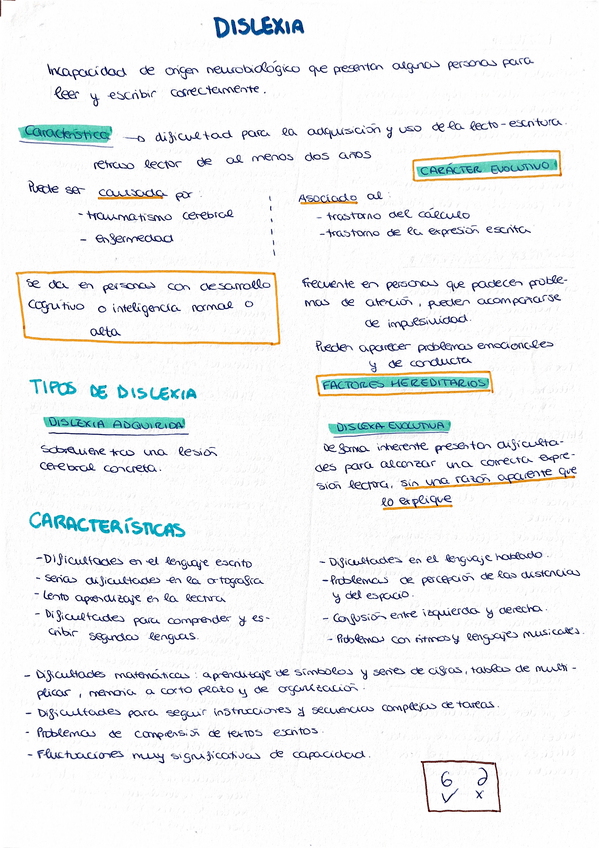 DISLEXIA
Incapacidad de origen neurobiológico que presentan algunas personas para
leer y escribir correctamente.
Característica → dificultad para la adquisición y uso de la lecto-escritura.
retraso lector de al menos dos años
CARÁCTER EVOLUTIVO
Puede ser causada por:
- traumatismo cerebral
- enfermedad
Asociado al:
- trastorno del cálculo
- trastorno de la expresión escrita
Se da en personas con desarrollo
cognitivo o inteligencia normal o
alta
Frecuente en personas que padecen proble-
mas de atención, pueden acompañarse
de impulsividad.
Pueden aparecer problemas emocionales
y de conducta
FACTORES HEREDITARIOS
TIPOS DE DISLEXIA
DISLEXIA ADQUIRIDA
Sobreviene tras una lesión
cerebral concreta.
DISLEXA EVOLUTIVA
De forma inherente presentan dificulta-
des para alcanzar una correcta expre-
sión lectora, sin una razón aparente que
lo explique
CARACTERÍSTICAS
- Dificultades en el lenguaje escrito
- Serias dificultades en la ortografía
- Lento aprendizaje en la lectura
- Dificultades para comprender y es-
cribir segundas lenguas.
- Dificultades en el lenguaje hablado.
- Problemas de percepción de las distancias
y del espacio.
- Confusión entre izquierda y derecha.
- Problemas con ritmos y lenguajes musicales.
- Dificultades matemáticas: aprendizaje de símbolos y series de cifras, tablas de multi-
plicar, memoria a corto plazo y de organización.
- Dificultades para seguir instrucciones y secuencias complejas de tareas.
- Problemas de comprensión de textos escritos.
- Fluctuaciones muy significativas de capacidad.
6 ∂
✓ x